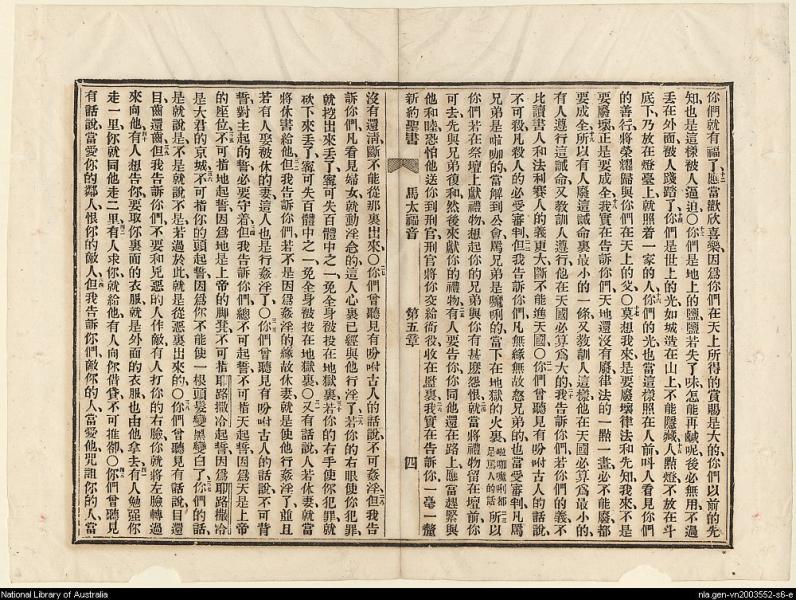 你們就有福了應當歡欣喜樂因爲你們在天上所得的賞賜是大的你們以前的先
知也是這樣被人逼迫○你們是地上的鹽鹽若失了味怎能再鹹呢後必無用不過
丟在外面被人踐踏了你們是世上的光如城造在山上不能隱藏人點燈不放在斗
底下乃放在燈臺上就照着一家的人你們的光也當這樣照在人前叫人看見你們
的善行將榮耀歸與你們在天上的父○莫想我來是要廢壞律法和先知我來不是
要廢壞正是要成全我實在告訴你們天地還沒有廢律法的一點一畫必不能廢都
要成全所以有人廢這誡命裏最小的一條又教訓人這樣他在天國必算爲最小的
有人遵行這誡命又教訓人遵行他在天國必算爲大的我告訴你們若你們的義不
比讀書人和法利賽人的義更大斷不能進天國○你們曾聽見有吩咐古人的話說
不可殺凡殺人的必受審判但我告訴你們凡無緣無故怒兄弟的也當受審判凡罵
兄弟是啦咖的當解到公會罵兄弟是魔唎的當下在地獄的火裏啦咖魔唎都是罵人的話所以
你們若在祭壇上獻禮物想起你的兄弟與你有甚麼怨恨就當將禮物留在壇前你
可去先與兄弟復和然後來獻你的禮物有人要告你你同他還在路上應當趕緊與
他和睦恐怕他送你到刑官刑官將你交給衙役收在監裏我實在告訴你一毫一釐
新約聖書 馬太福音 第五章 四
沒有還清斷不能從那裏出來○你們曾聽見有吩咐古人的話說不可姦淫但我告
訴你們凡看見婦女就動淫念的這人心裏已經與他行淫了若你的右眼使你犯罪
就挖出來丟了寧可失百體中之一免全身被投在地獄裏若你的右手使你犯罪就
砍下來丟了寧可失百體中之一免全身被投在地獄裏○又有話說人若休妻就當
將休書給他但我告訴你們若不是因爲姦淫的緣故休妻就是使他行姦淫了並且
若有人娶被休的妻這人也是行姦淫了○你們曾聽見有吩咐古人的話說不可背
誓對主起的誓必要守着但我告訴你們總不可起誓不可指天起誓因爲天是上帝
的座位不可指地起誓因爲地是上帝的脚凳不可指耶路撒冷起誓因爲耶路撒冷
是大君的京城不可指你的頭起誓因爲你不能使一根頭髮變黑變白了你們的話
是就說是不是就說不是若過於此就是從惡裏出來的○你們曾聽見有話說目還
目齒還齒但我告訴你們不要和兇惡的人作敵有人打你的右臉你就將左臉轉過
來向他有人想告你要取你裏面的衣服就是外面的衣服也由他拿去有人勉強你
走一里你就同他走二里有人求你就給他有人向你借貸不可推卻○你們曾聽見
有話說當愛你的鄰人恨你的敵人但我告訴你們敵你的人當愛他咒詛你的人當
National Library of Australia
nla.gen-vn2003552-s6-e